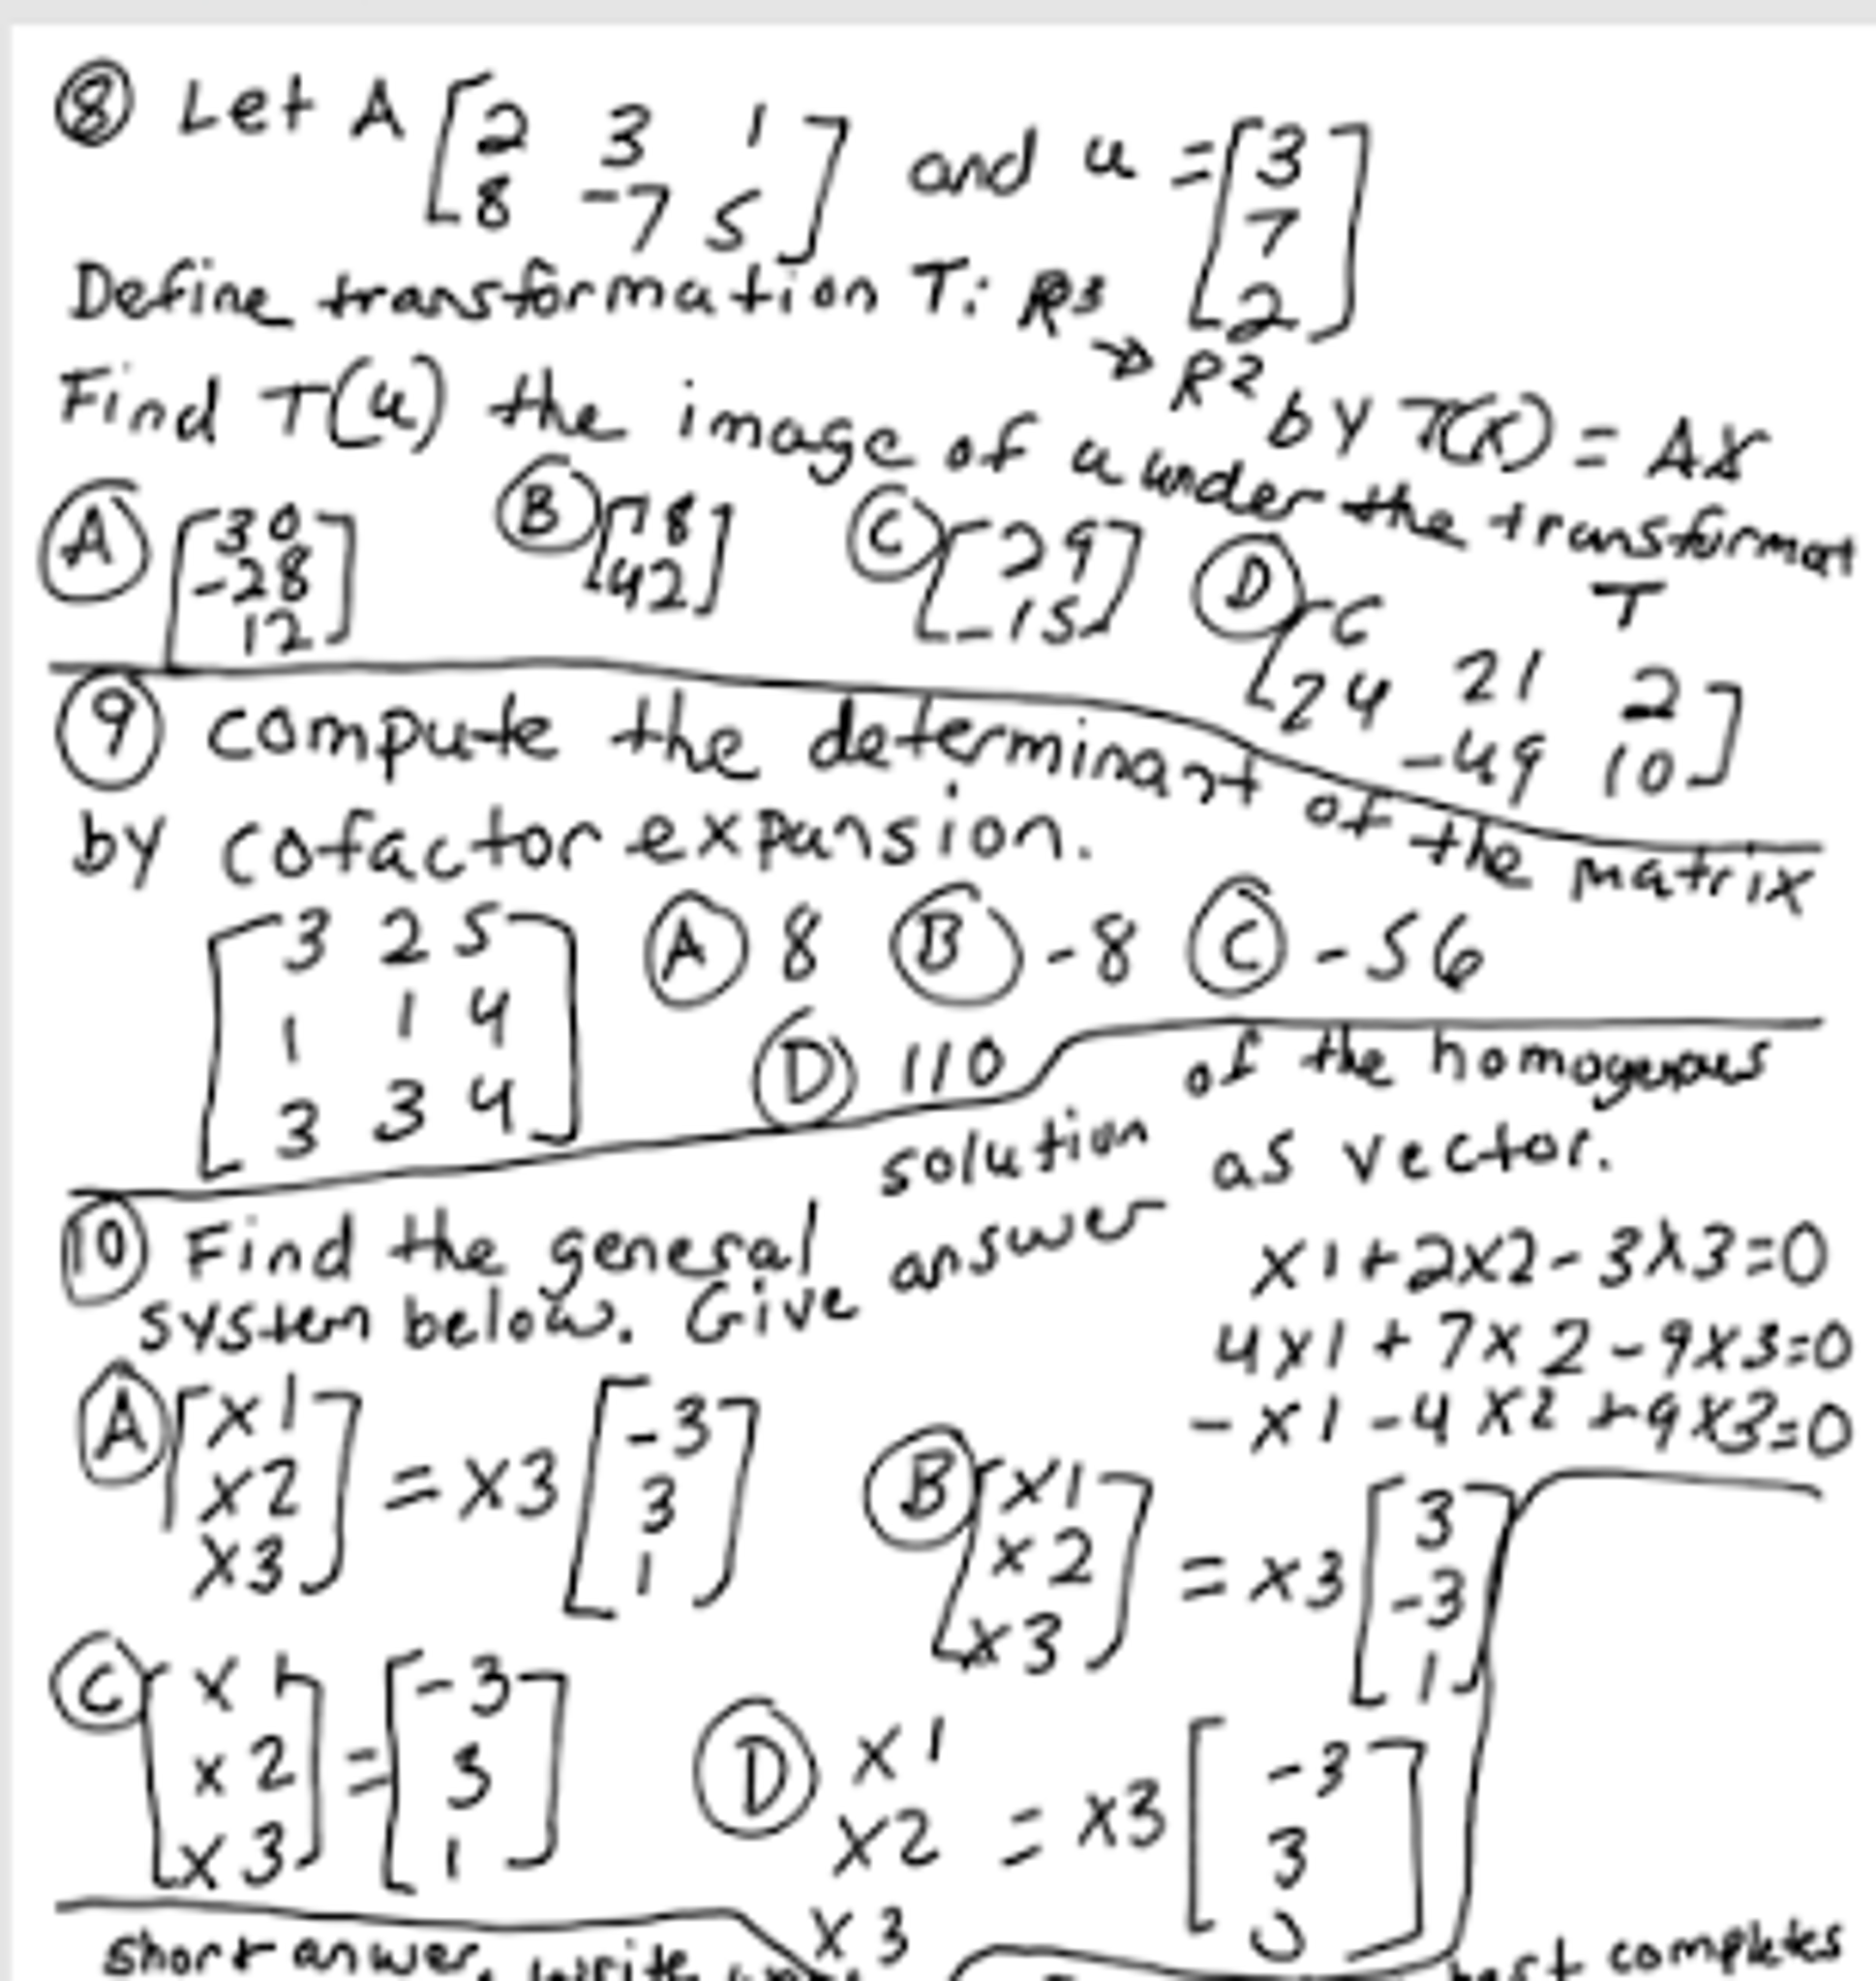 ⑧ Let A [2 3 1 and u = [3
8 -7 5] 7
Define transformation T: R³ 2]
→ R² by T(X) = AX
Find T(u) the image of u under the transformat
T
Ⓐ [30 Ⓑ [18 Ⓒ [29 Ⓓ [6 21 2
-28 42] -15] 24 -49 10]
12]
⑨ compute the determinant of the matrix
by cofactor expansion.
[3 2 5 Ⓐ 8 Ⓑ -8 Ⓒ -56
1 1 4 Ⓓ 110
3 3 4]
⑩ Find the general solution of the homogenous
system below. Give answer as vector.
x1+2x2-3x3=0
4x1+7x2-9x3=0
-x1-4x2+9x3=0
Ⓐ [x1 = x3 [-3 Ⓑ [x1 = x3 [3
x2 3 x2 -3
x3] 1] x3] 1]
Ⓒ [x1 = [-3 Ⓓ x1 = x3 [-3
x2 3 x2 3
x3] 1] x3 0]
short anwer. write
completes